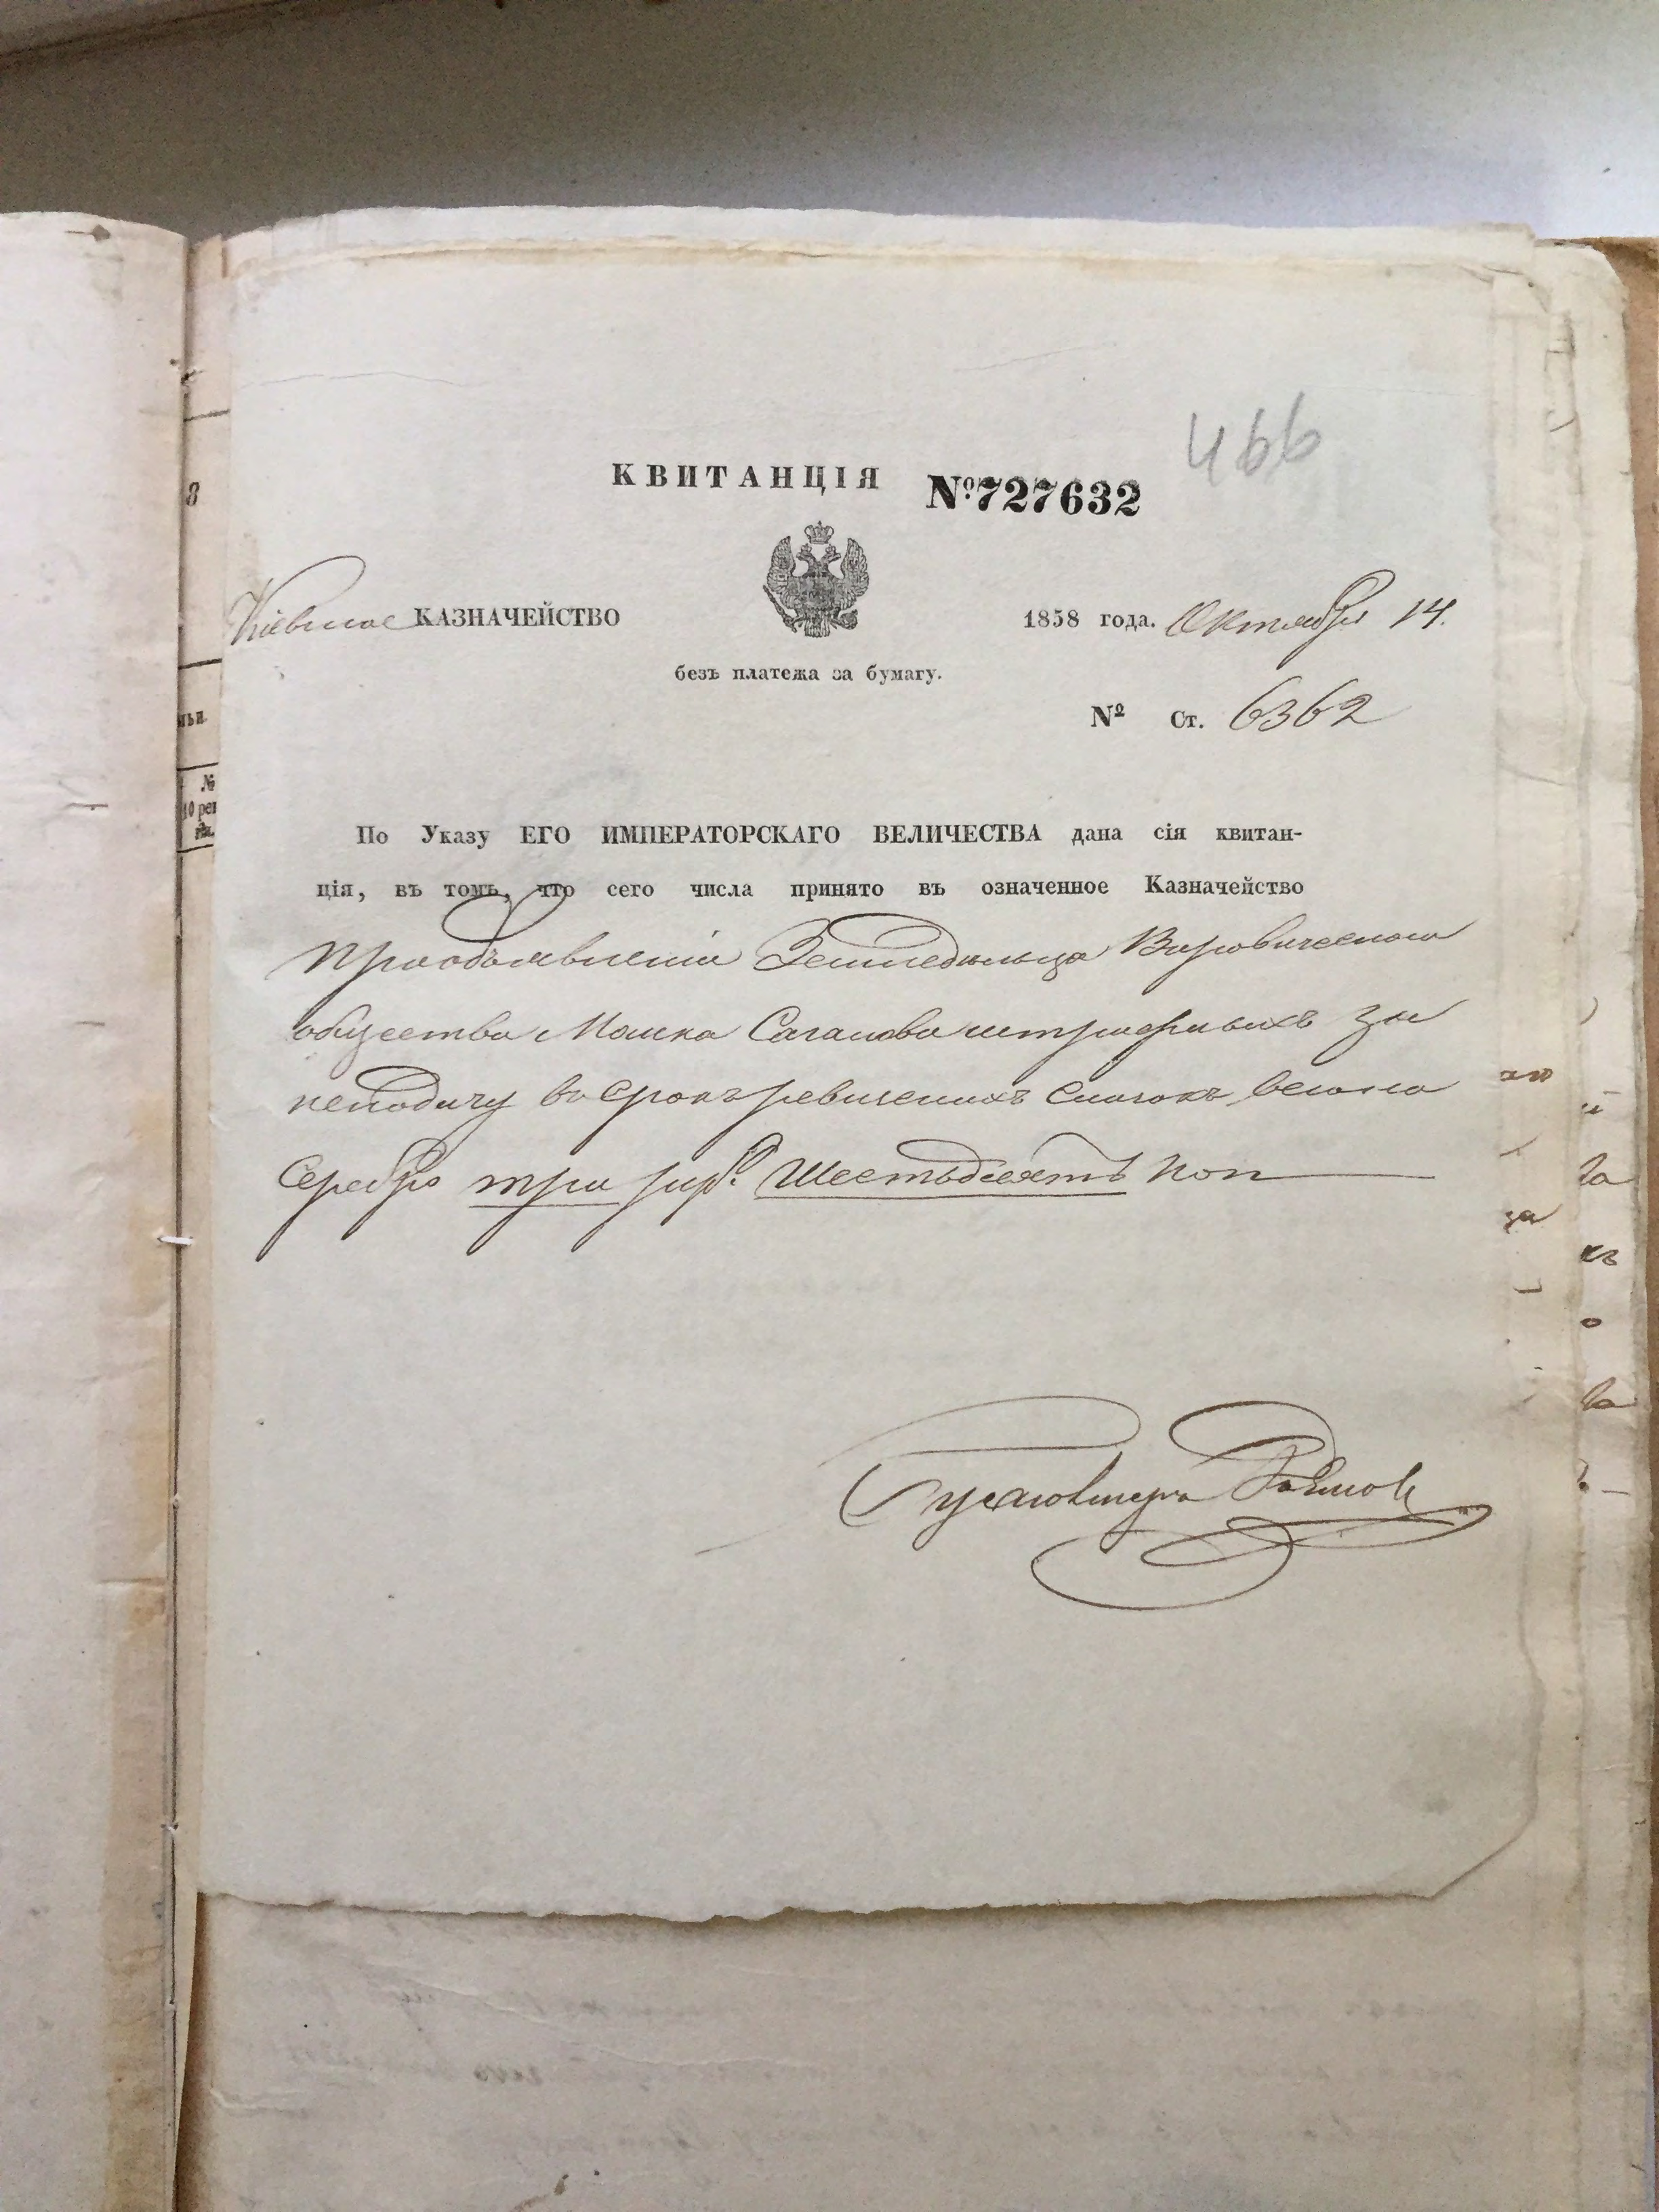 466
КВИТАНЦІЯ №727632
Кіевское КАЗНАЧЕЙСТВО
1858 года. Октября 14.
безъ платежа за бумагу.
№ Ст. 6362
По Указу ЕГО ИМПЕРАТОРСКАГО ВЕЛИЧЕСТВА дана сія квитан-
ція, въ томъ, что сего числа принято въ означенное Казначейство
при объявленіи Земледельца Воровического
общества Мошка штрафныхъ за
неподачу въ срокъ ревизскихъ сказокъ всего
Серебро три руб. Шестьдесятъ коп
Бухгалтеръ
8
№
10 рев
за
ка
къ
о